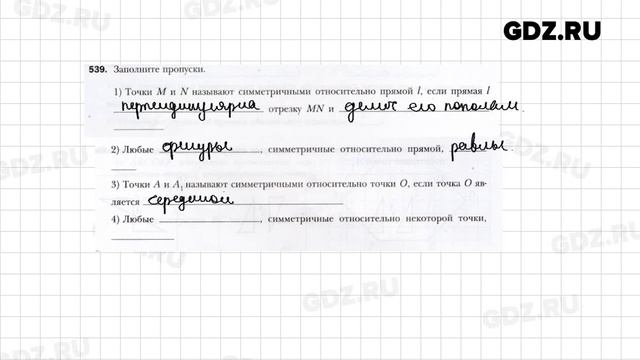 GDZ.RU
539. Заполните пропуски.
1) Точки M и N называют симметричными относительно прямой l, если прямая l
перпендикулярна отрезку MN и делит его пополам.
2) Любые фигуры, симметричные относительно прямой, равны.
3) Точки A и A₁ называют симметричными относительно точки O, если точка O яв-
ляется серединой
4) Любые , симметричные относительно некоторой точки,